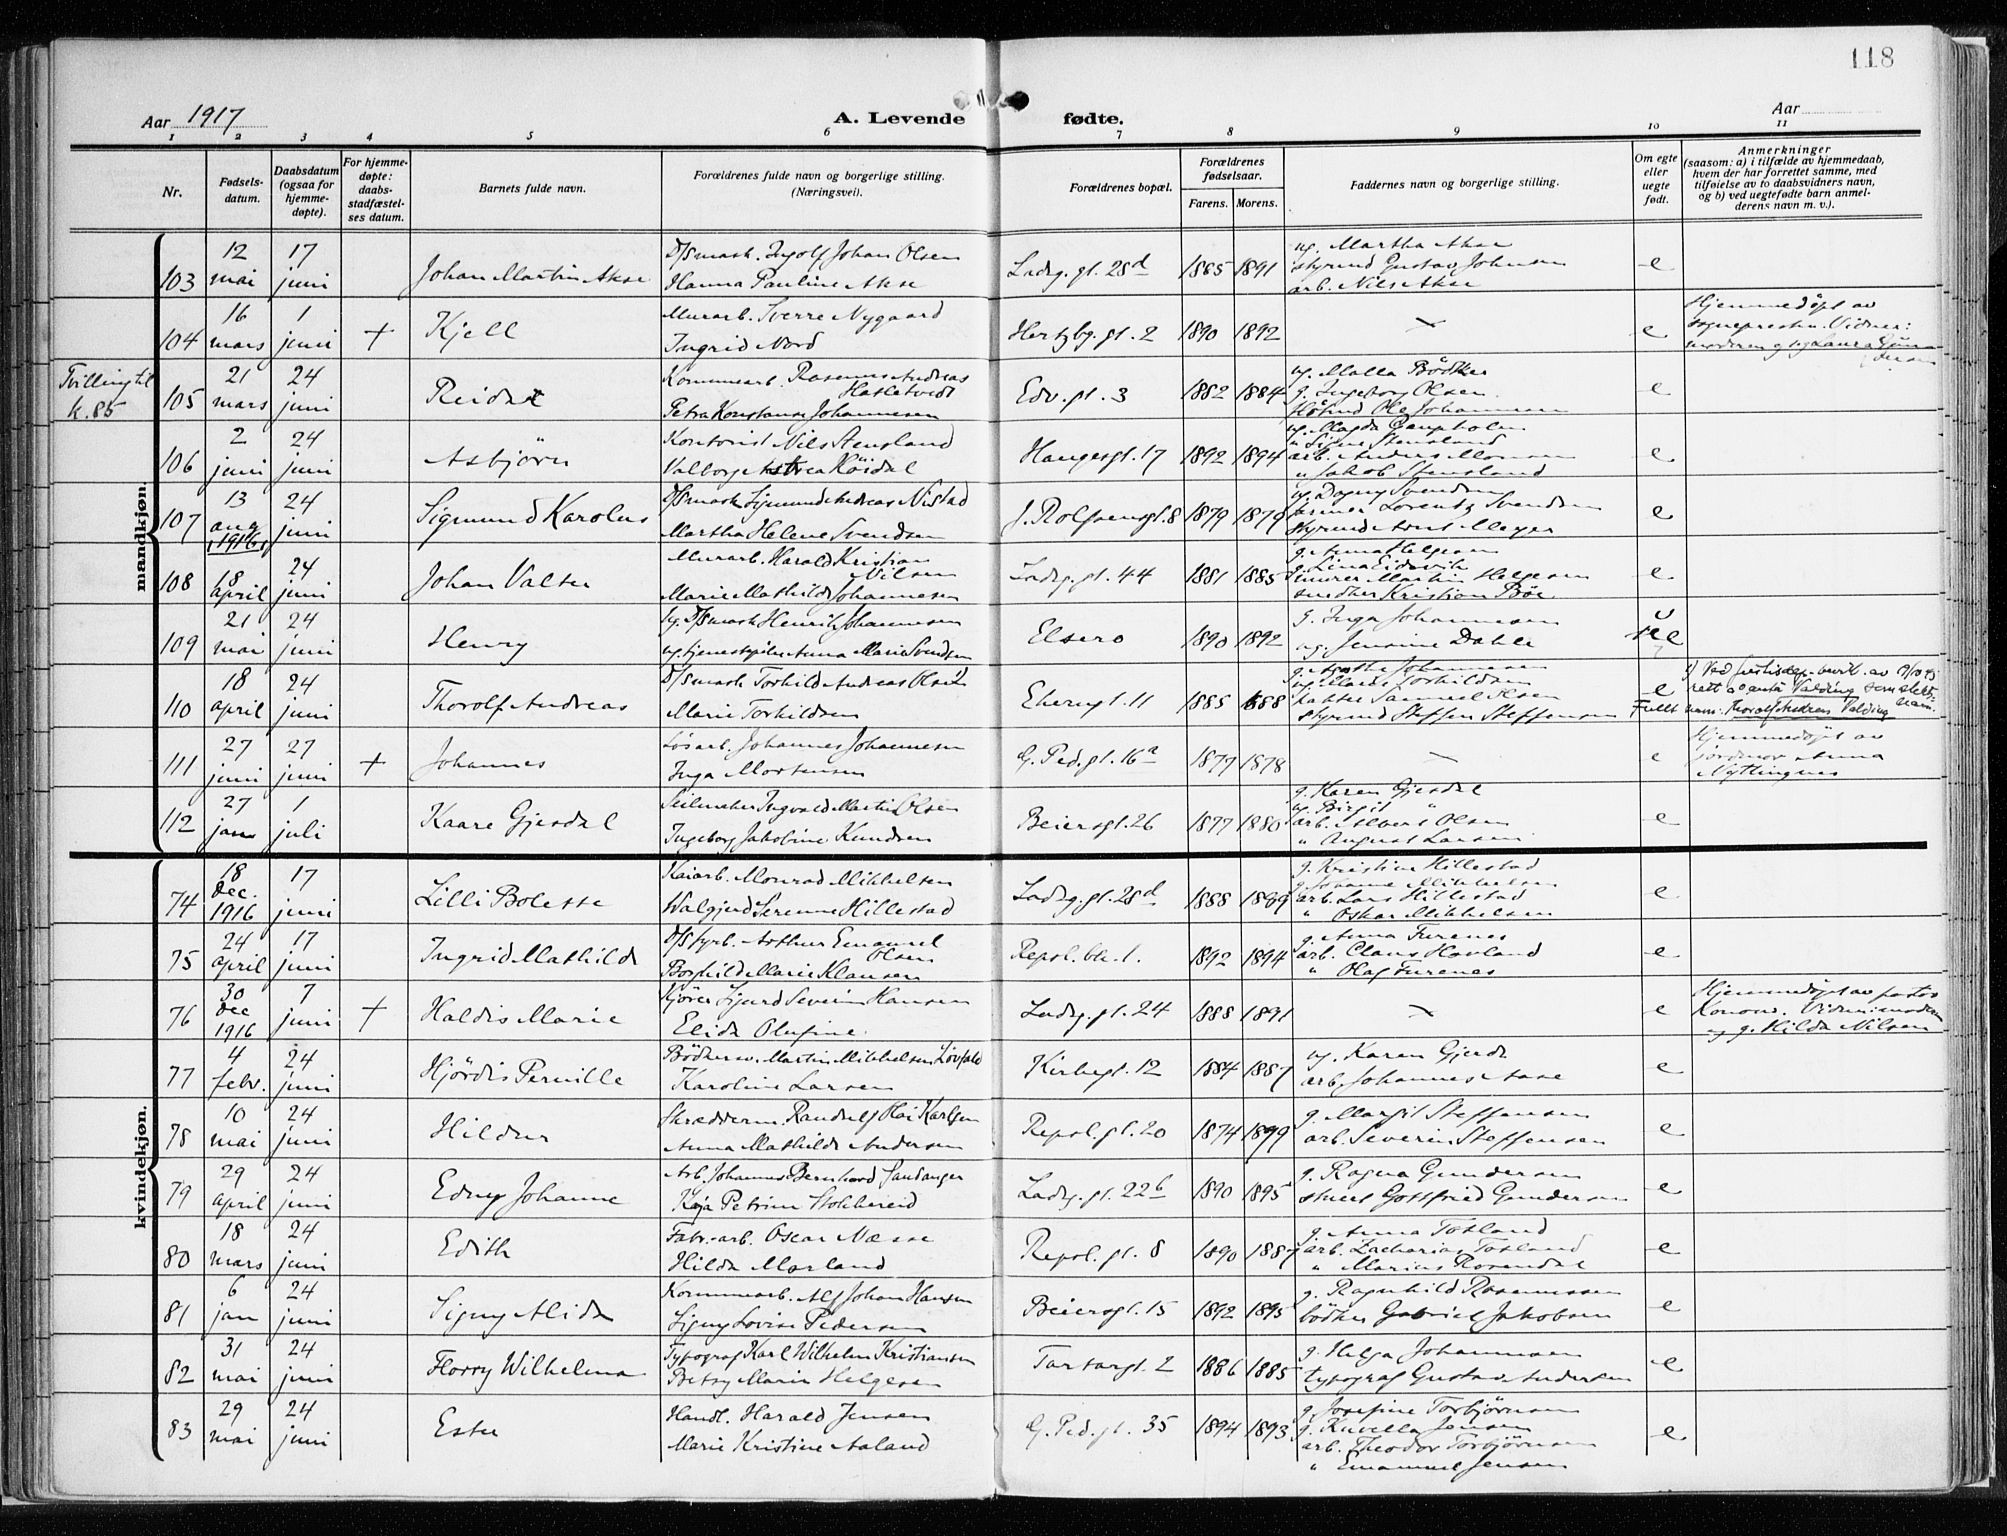 118
Aar 1917
A. Levende fødte.
Aar
1 2 3 4 5 6 7 8 9 10 11
Nr.
Fødsels-
datum.
Daabsdatum
(ogsaa for
hjemme-
døpte).
For hjemme-
døpte:
daabs-
stadfæstel-
ses datum.
Barnets fulde navn.
Forældrenes fulde navn og borgerlige stilling.
(Næringsvei).
Forældrenes bopæl.
Forældrenes
fødselsaar.
Farens. Morens.
Faddernes navn og borgerlige stilling.
Om egte
eller
uegte
født.
Anmerkninger
(saasom: a) i tilfælde av hjemmedaab,
hvem der har forrettet samme, med
tilføielse av to daabsvidners navn,
og b) ved uegtefødte barn anmel-
derens navn m. v.).
mandkjøn.
103
12 mai
17 juni
Johan Martin Akse
D/Smask. Ingolf Johan Olsen
Hanna Pauline Akse
Ladg. gt. 28d
1865 1891
ug. Martha Akse
styrmd Gustav Johnsen
arb. Nils Akse
e
104
16 mars
1 juni
+
Kjell
Murarb. Sverre Nygaard
Ingrid Nord
Hertzbg. gt. 2
1890 1892
e
Hjemmedöpt av
sognepresten. Vidner:
moderen og
Tvilling til
k. 85
105
21 mars
24 juni
Reidar
Kommunearb. Rasmus Andreas
Hatletvedt
Petra Konstanse Johannesen
Edv. gt. 3
1882 1884
ug. Malla Bödker
g. Ingeborg Olsen
Ole Johannesen
e
106
2 juni
24 juni
Asbjörn
Kontorist Nils Stensland
Valborg Astrea Röidal
Haugesgt. 17
1892 1894
ug. Magda
" Signe Stensland
arb. Anders
" Jakob Stensland
e
107
13 aug 1916
24 juni
Sigmund Karolus
D/Smask Sigmund Andreas Nistad
Martha Helene Svendsen
J. Rolfsensgt. 8
1879 1879
ug. Dagny Svendsen
Lorentz Svendsen
styrmd Arnt Meyer
e
108
18 april
24 juni
Johan Valter
Murarb. Harald Kristian
Nilsen
Marie Mathilde Johannesen
Ladg. gt. 44
1881 1885
g. Anna Helgesen
g. Lina Eidsvik
Martin Helgesen
Kristian Böe
e
109
21 mai
24 juni
Henry
D/Smask Henrik Johannesen
ug. tjenestepike Anna Marie Svendsen
Elsero
1890 1892
g. Inga Johannesen
ug. Jensine Dahle
110
18 april
24 juni
Thorolf Andreas
D/Smask Torkild Andreas Olsen
Marie Torkildsen
Ekerngt. 11
1885 1888
g. Agathe Johannesen
ug. Marie Torkildsen
Samuel Olsen
styrmd Steffen Steffensen
e
Fullt
rett a anta Valding som slekts-
navn: Thorolf Andreas Valding
111
27 juni
27 juni
+
Johannes
Lösarb. Johannes Johannesen
Inga Mortensen
G. Ped. gt. 16a
1877 1878
e
Hjemmedöpt av
jordmor Anna
Nyttingnes
112
27 jan
1 juli
Kaare Gjesdal
Seilmaker Ingvald Martin Olsen
Ingeborg Jakobine Knudsen
Beiersgt. 26
1877 1880
g. Karen Gjesdal
ug. Birgit "
arb. Albert Olsen
" August Larsen
e
kvindekjøn.
74
18 Dec. 1916
17 juni
Lilli Bolette
Kaiarb. Monrad Mikkelsen
Walgjerd Serenne Hillestad
Ladg. gt. 28d
1888 1889
g. Kristine Hillestad
g. Johanne Mikkelsen
arb. Lars Hillestad
" Oskar Mikkelsen
e
75
24 april
17 juni
Ingrid Mathilde
D/S fyrb. Arthur Emanuel
Olsen
Borghild Marie Klausen
Repsl. bk. 1.
1892 1894
g. Anna Furenes
arb. Claus Hovland
" Olaf Furenes
e
76
30 Dec 1916
7 juni
+
Haldis Marie
Kjörer Sigurd Severin Hansen
Elida Olufine
Ladg. gt. 24
1888 1891
e
Hjemmedöpt av pastor
Konow. Vidner: moderen
og g. Hilda Nilsen
77
4 febr.
24 juni
Hjördis Pernille
Bödkersv. Martin Mikkelsen Lövfald
Karoline Larsen
Kirkegt. 12
1884 1887
ug. Karen Gjerde
arb. Johannes Aase
e
78
10 mai
24 juni
Hildur
Skrædderm. Randulf Olai Karlsen
Anna Mathilde Andersen
Repsl. gt. 20
1874 1899
g. Margit Steffensen
arb. Severin Steffensen
e
79
29 april
24 juni
Edny Johanne
Arb. Johannes Bernhard Sandanger
Kaja Petrine Stokkereid
Ladg. gt. 22b
1890 1895
g. Ragna Gundersen
Gottfried Gundersen
e
80
18 mars
24 juni
Edith
Fabr.-arb. Oscar Næsse
Hilda Morland
Repsl. gt. 8
1890 1887
g. Anna Totland
arb. Zacharias Totland
" Marius Rosendal
e
81
6 jan
24 juni
Signy Alida
Kommunearb. Alf Johan Hansen
Signy Lovise Pedersen
Beiersgt. 15
1892 1895
g. Ragnhild Rasmussen
bödker Gabriel Jakobsen
e
82
31 mai
24 juni
Florry Wilhelmina
Typograf Karl Wilhelm Kristiansen
Betsy Marie Helgesen
Tartargt. 2
1886 1885
g. Helga Johannesen
typograf Gustav Andersen
e
83
29 mai
24 juni
Ester
Handl. Harald Jensen
Marie Kristine Aaland
G. Ped. gt. 35
1894 1893
g. Josefine Torbjörnsen
g. Jensen
arb. Theodor Torbjörnsen
" Emanuel Jensen
e